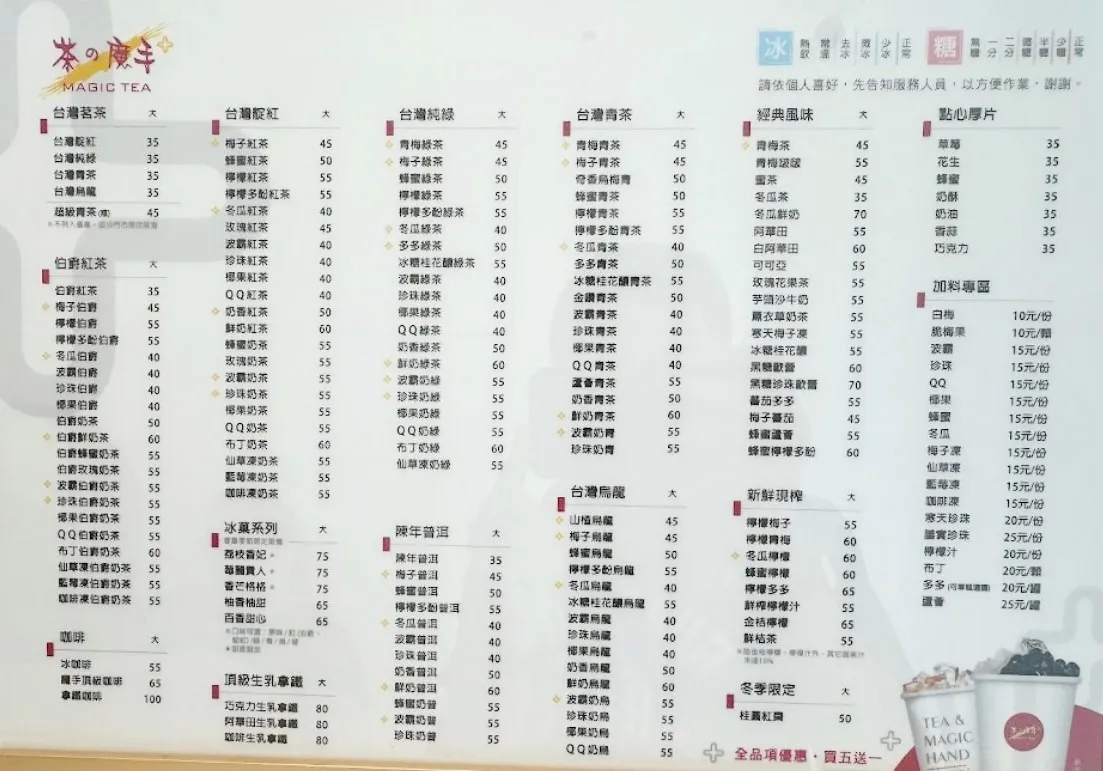 茶の魔手
MAGIC TEA
冰 熱飲 常溫 去冰 微冰 少冰 正常
糖 無糖 一分 二分 微糖 半糖 少糖 正常
請依個人喜好，先告知服務人員，以方便作業，謝謝。
台灣茗茶 大
台灣靛紅 35
台灣純綠 35
台灣青茶 35
台灣烏龍 35
超級青茶(瓶) 45
伯爵紅茶 大
伯爵紅茶 35
梅子伯爵 45
檸檬伯爵 55
檸檬多酚伯爵 55
冬瓜伯爵 40
波霸伯爵 40
珍珠伯爵 40
椰果伯爵 40
伯爵奶茶 50
伯爵鮮奶茶 60
伯爵蜂蜜奶茶 55
伯爵玫瑰奶茶 55
波霸伯爵奶茶 55
珍珠伯爵奶茶 55
椰果伯爵奶茶 55
QQ伯爵奶茶 55
布丁伯爵奶茶 60
仙草凍伯爵奶茶 55
藍莓凍伯爵奶茶 55
咖啡凍伯爵奶茶 55
咖啡 大
冰咖啡 55
魔手頂級咖啡 65
拿鐵咖啡 100
台灣靛紅 大
梅子紅茶 45
蜂蜜紅茶 50
檸檬紅茶 55
檸檬多酚紅茶 55
冬瓜紅茶 40
玫瑰紅茶 45
波霸紅茶 40
珍珠紅茶 40
椰果紅茶 40
QQ紅茶 40
奶香紅茶 50
鮮奶紅茶 60
蜂蜜奶茶 55
玫瑰奶茶 55
波霸奶茶 55
珍珠奶茶 55
椰果奶茶 55
QQ奶茶 55
布丁奶茶 60
仙草凍奶茶 55
藍莓凍奶茶 55
咖啡凍奶茶 55
冰菓系列 大
荔枝香妃 75
莓麗貴人 75
香芒格格 75
柚香柚甜 65
百香甜心 65
頂級生乳拿鐵 大
巧克力生乳拿鐵 80
阿華田生乳拿鐵 80
咖啡生乳拿鐵 80
台灣純綠 大
青梅綠茶 45
梅子綠茶 45
蜂蜜綠茶 50
檸檬綠茶 55
檸檬多酚綠茶 55
冬瓜綠茶 40
多多綠茶 50
冰糖桂花釀綠茶 55
波霸綠茶 40
珍珠綠茶 40
椰果綠茶 40
QQ綠茶 40
奶香綠茶 50
鮮奶綠茶 60
波霸奶綠 55
珍珠奶綠 55
椰果奶綠 55
QQ奶綠 55
布丁奶綠 60
仙草凍奶綠 55
陳年普洱 大
陳年普洱 35
梅子普洱 45
蜂蜜普洱 50
檸檬多酚普洱 55
冬瓜普洱 40
波霸普洱 40
珍珠普洱 40
奶香普洱 50
鮮奶普洱 60
蜂蜜奶普 55
波霸奶普 55
珍珠奶普 55
台灣青茶 大
青梅青茶 45
梅子青茶 45
奇香烏梅青 50
蜂蜜青茶 50
檸檬青茶 55
檸檬多酚青茶 55
冬瓜青茶 40
多多青茶 50
冰糖桂花釀青茶 55
金鑽青茶 50
波霸青茶 40
珍珠青茶 40
椰果青茶 40
QQ青茶 40
蘆薈青茶 55
奶香青茶 50
鮮奶青茶 60
波霸奶青 55
珍珠奶青 55
台灣烏龍 大
山楂烏龍 45
梅子烏龍 45
蜂蜜烏龍 50
檸檬多酚烏龍 55
冬瓜烏龍 40
冰糖桂花釀烏龍 55
波霸烏龍 40
珍珠烏龍 40
椰果烏龍 40
奶香烏龍 50
鮮奶烏龍 60
波霸奶烏 55
珍珠奶烏 55
椰果奶烏 55
QQ奶烏 55
經典風味 大
青梅茶 45
青梅啵啵 55
蜜茶 45
冬瓜茶 35
冬瓜鮮奶 70
阿華田 55
白阿華田 60
可可亞 55
玫瑰花果茶 55
芋頭沙牛奶 55
薰衣草奶茶 55
寒天梅子凍 55
冰糖桂花釀 55
黑糖歐蕾 60
黑糖珍珠歐蕾 70
蕃茄多多 55
梅子蕃茄 45
蜂蜜蘆薈 55
蜂蜜檸檬多酚 60
新鮮現榨 大
檸檬梅子 55
檸檬青梅 60
冬瓜檸檬 60
蜂蜜檸檬 60
檸檬多多 65
鮮榨檸檬汁 55
金桔檸檬 65
鮮桔茶 55
冬季限定 大
桂圓紅棗 50
點心厚片
草莓 35
花生 35
蜂蜜 35
奶酥 35
奶油 35
香蒜 35
巧克力 35
加料專區
白梅 10元/份
脆梅果 10元/顆
波霸 15元/份
珍珠 15元/份
QQ 15元/份
椰果 15元/份
蜂蜜 15元/份
冬瓜 15元/份
梅子凍 15元/份
仙草凍 15元/份
藍莓凍 15元/份
咖啡凍 15元/份
寒天珍珠 20元/份
蘆實珍珠 25元/份
檸檬汁 20元/份
布丁 20元/顆
多多 20元/罐
蘆薈 25元/罐
全品項優惠・買五送一
TEA &
MAGIC
HAND